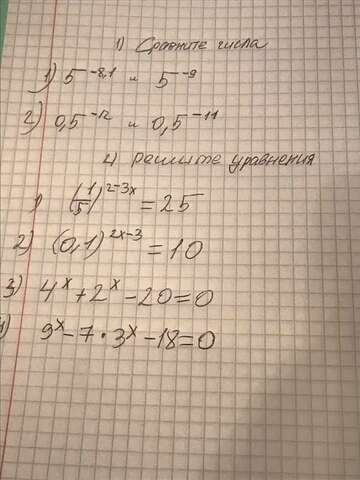 1) Сравните числа
1) 5^-8,1 и 5^-9
2) 0,5^-12 и 0,5^-11
2) решите уравнения
1) (1/5)^2-3x = 25
2) (0,1)^2x-3 = 10
3) 4^x + 2^x - 20 = 0
4) 9^x - 7 · 3^x - 18 = 0